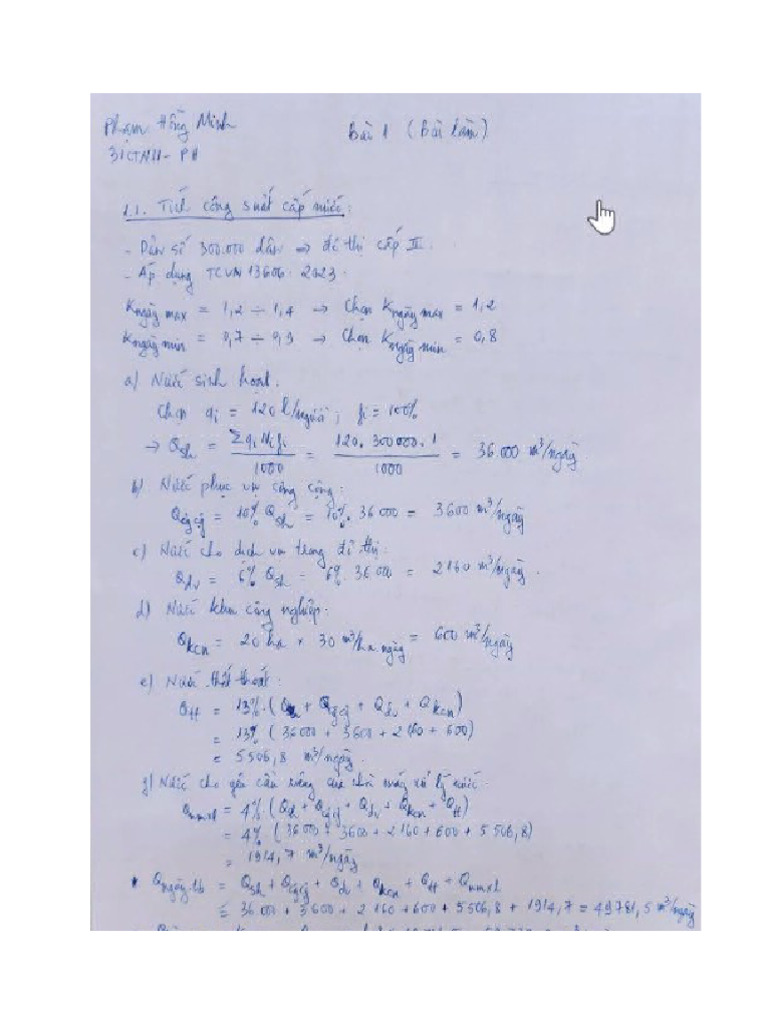 Phạm Hồng Minh
Bài 1 (Bài làm)
31CTN11 - PH
1.1. Tính công suất cấp nước:
- Dân số 300.000 dân => đô thị cấp II.
- Áp dụng TCVN 13606:2023.
Kngày max = 1,2 ÷ 1,4 → Chọn Kngày max = 1,2
Kngày min = 0,7 ÷ 0,9 → Chọn Kngày min = 0,8
a) Nước sinh hoạt.
Chọn qi = 120 l/người ; fi = 100%
→ Qsh = Σqi Ni fi / 1000 = 120. 300000. 1 / 1000 = 36000 m³/ngày
b) Nước phục vụ công cộng:
Qcgcg = 10% Qsh = 10%. 36000 = 3600 m³/ngày
c) Nước cho dịch vụ trong đô thị:
Qdv = 6% Qsh = 6%. 36000 = 2160 m³/ngày.
d) Nước khu công nghiệp:
Qkcn = 20 ha x 30 m³/ha.ngày = 600 m³/ngày
e) Nước thất thoát:
Qtt = 13%.(Qsh + Qcgcg + Qdv + Qkcn)
= 13% (36000 + 3600 + 2160 + 600)
= 5506,8 m³/ngày.
g) Nước cho yêu cầu riêng của nhà máy xử lý nước:
Qnmxl = 4% (Qsh + Qcgcg + Qdv + Qkcn + Qtt)
= 4% (36000 + 3600 + 2160 + 600 + 5506,8)
= 1914,7 m³/ngày
* Qngày tb = Qsh + Qcgcg + Qdv + Qkcn + Qtt + Qnmxl
= 36000 + 3600 + 2160 + 600 + 5506,8 + 1914,7 = 49781,5 m³/ngày